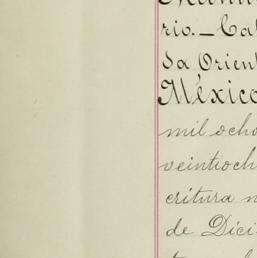 rio._Cal
sa Orient
México
mil ocho
veintioch
critura n
de Dici